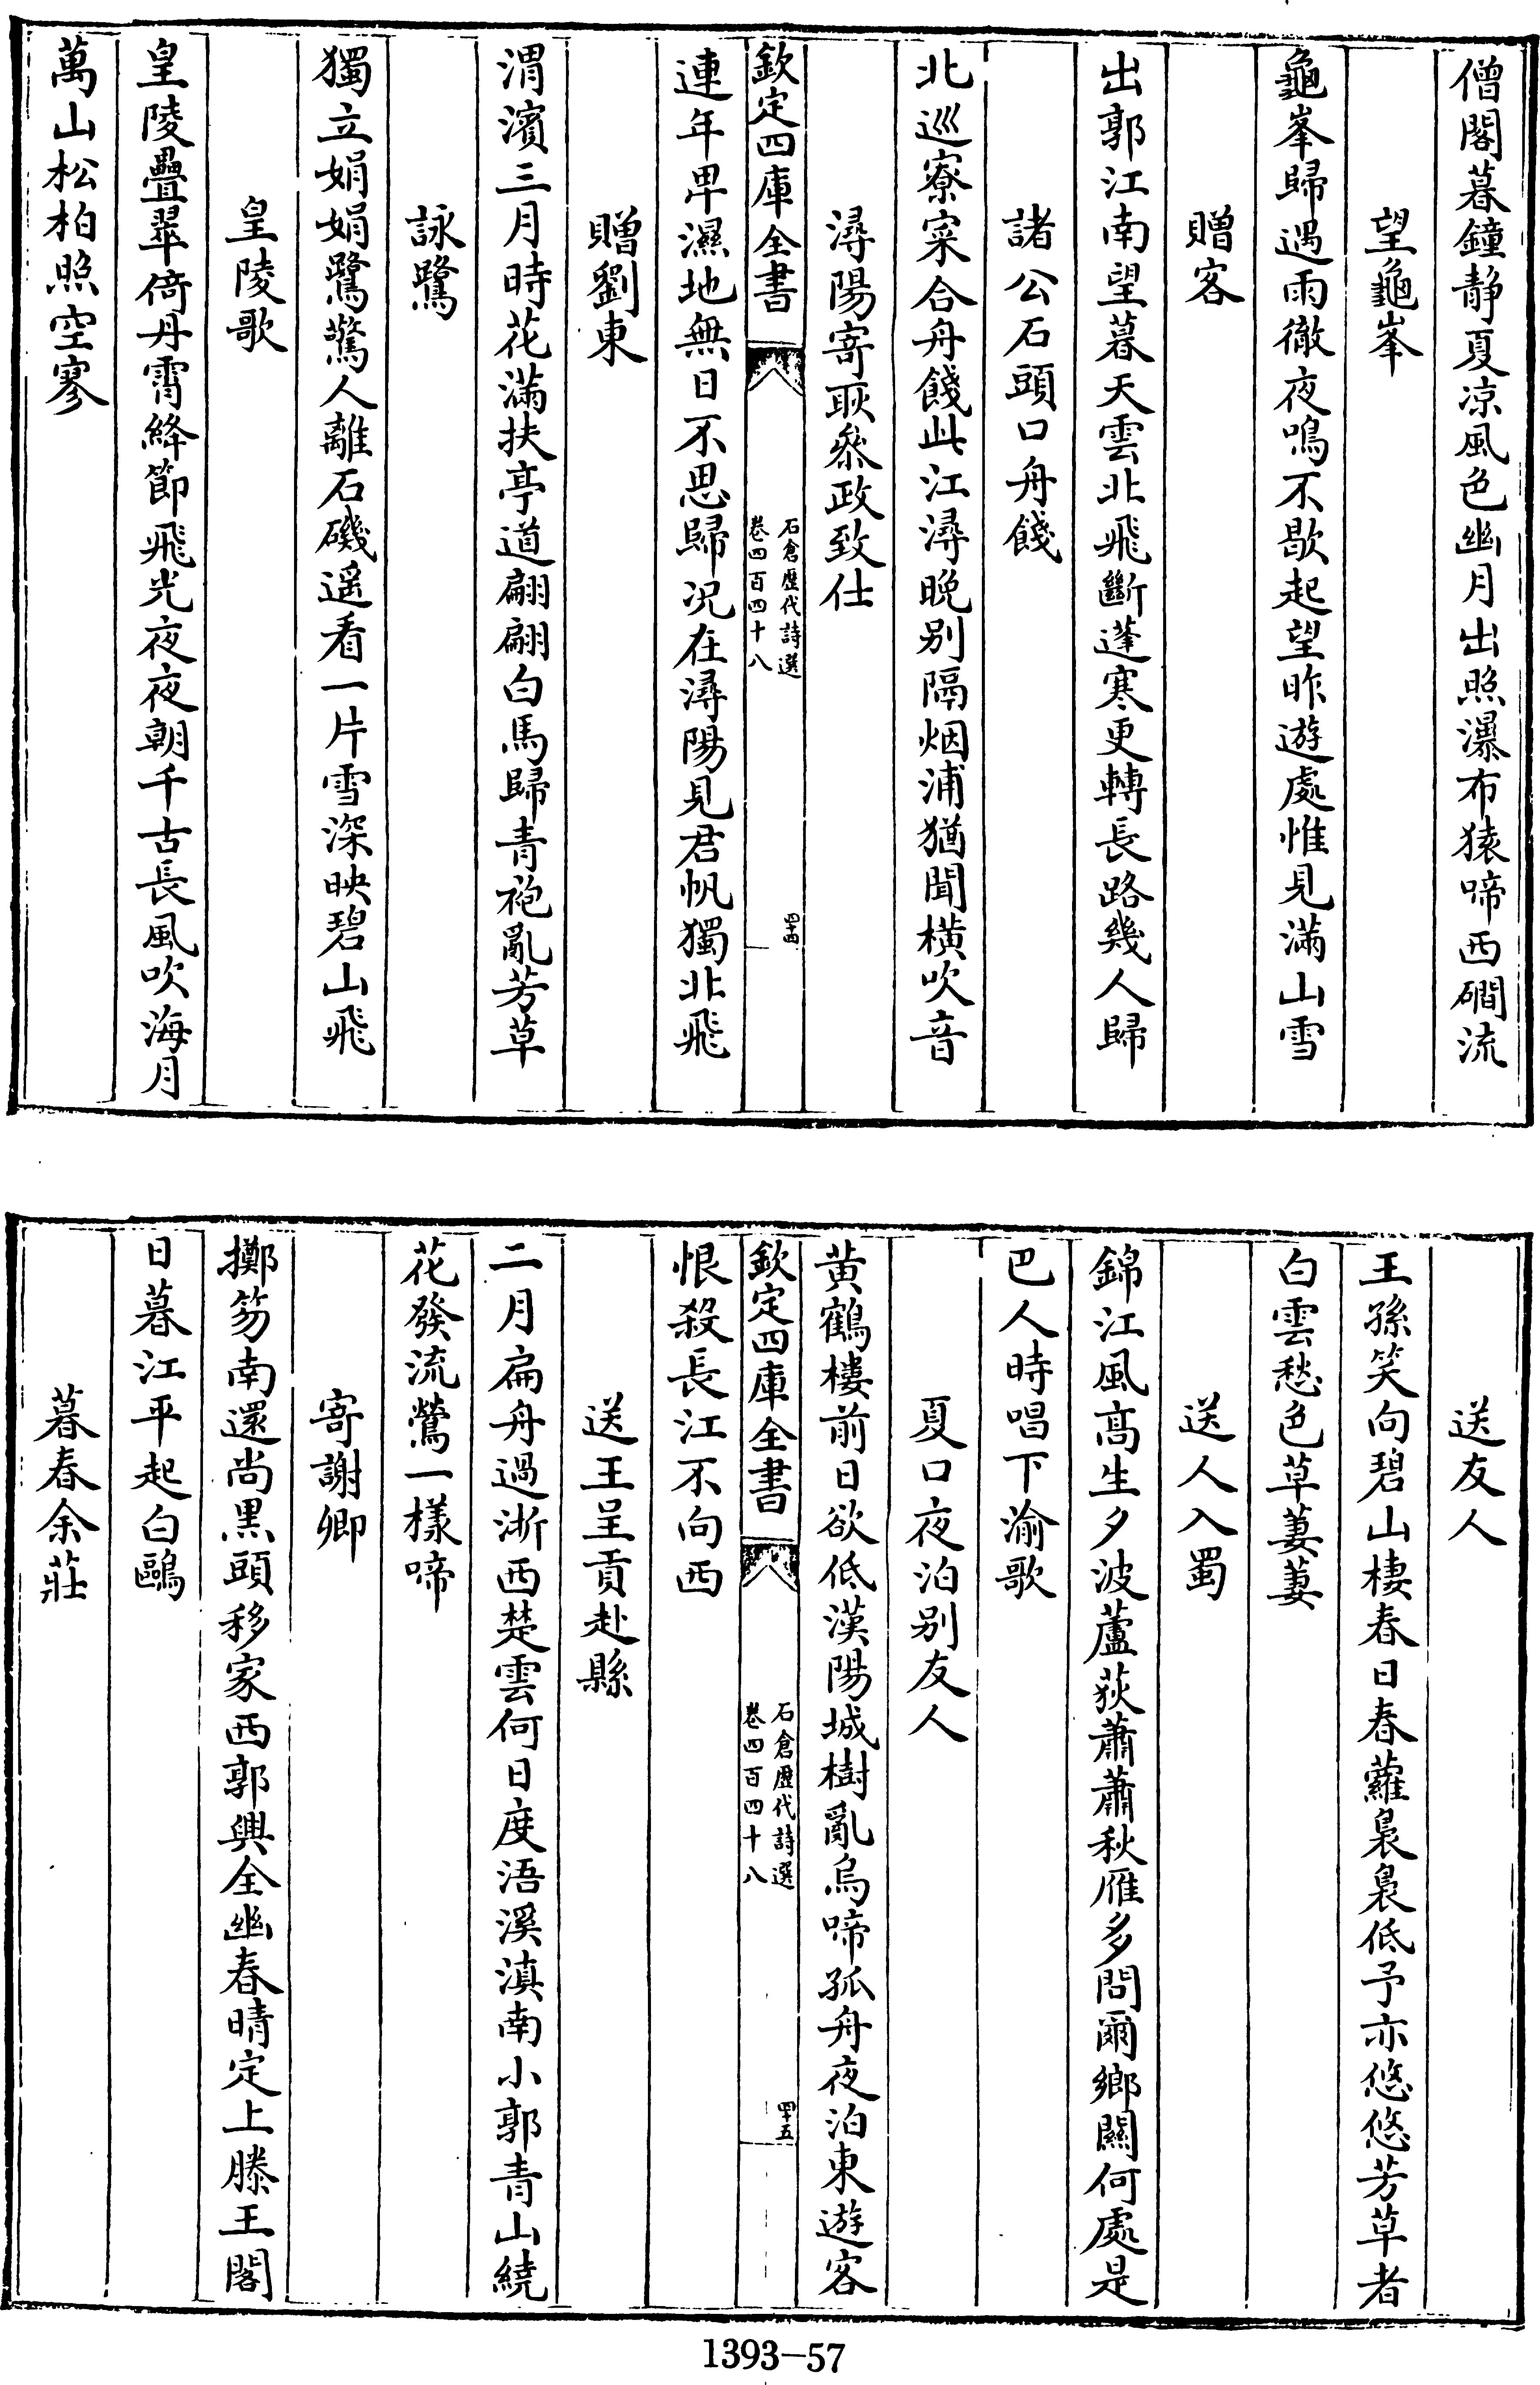 僧閣暮鐘静夏凉風色幽月出照瀑布猿啼西磵流
望龜峯
龜峯歸遇雨徹夜鳴不歇起望昨遊處惟見滿山雪
贈客
出郭江南望暮天雲北飛斷蓬寒更轉長路幾人歸
諸公石頭口舟餞
北巡寮寀合舟餞此江潯晚别隔烟浦猶聞横吹音
潯陽寄耿叅政致仕
欽定四庫全書
石倉歷代詩選
卷四百四十八
四十四
連年卑濕地無日不思歸况在潯陽見君帆獨北飛
贈劉東
渭濱三月時花滿扶亭道翩翩白馬歸青袍亂芳草
詠鷺
獨立娟娟鷺驚人離石磯遥看一片雪深映碧山飛
皇陵歌
皇陵疊翠倚丹霄絳節飛光夜夜朝千古長風吹海月
萬山松柏照空寥
送友人
王孫笑向碧山棲春日春蘿裊裊低予亦悠悠芳草者
白雲愁色草萋萋
送人入蜀
錦江風髙生夕波蘆荻蕭蕭秋雁多問爾鄉關何處是
巴人時唱下渝歌
夏口夜泊别友人
黄鶴樓前日欲低漢陽城樹亂烏啼孤舟夜泊東遊客
欽定四庫全書
石倉歷代詩選
卷四百四十八
四十五
恨殺長江不向西
送王呈貢赴縣
二月扁舟過浙西楚雲何日度浯溪滇南小郭青山繞
花發流鶯一樣啼
寄謝卿
擲笏南還尚黒頭移家西郭興全幽春晴定上滕王閣
日暮江平起白鷗
暮春余莊
1393-57